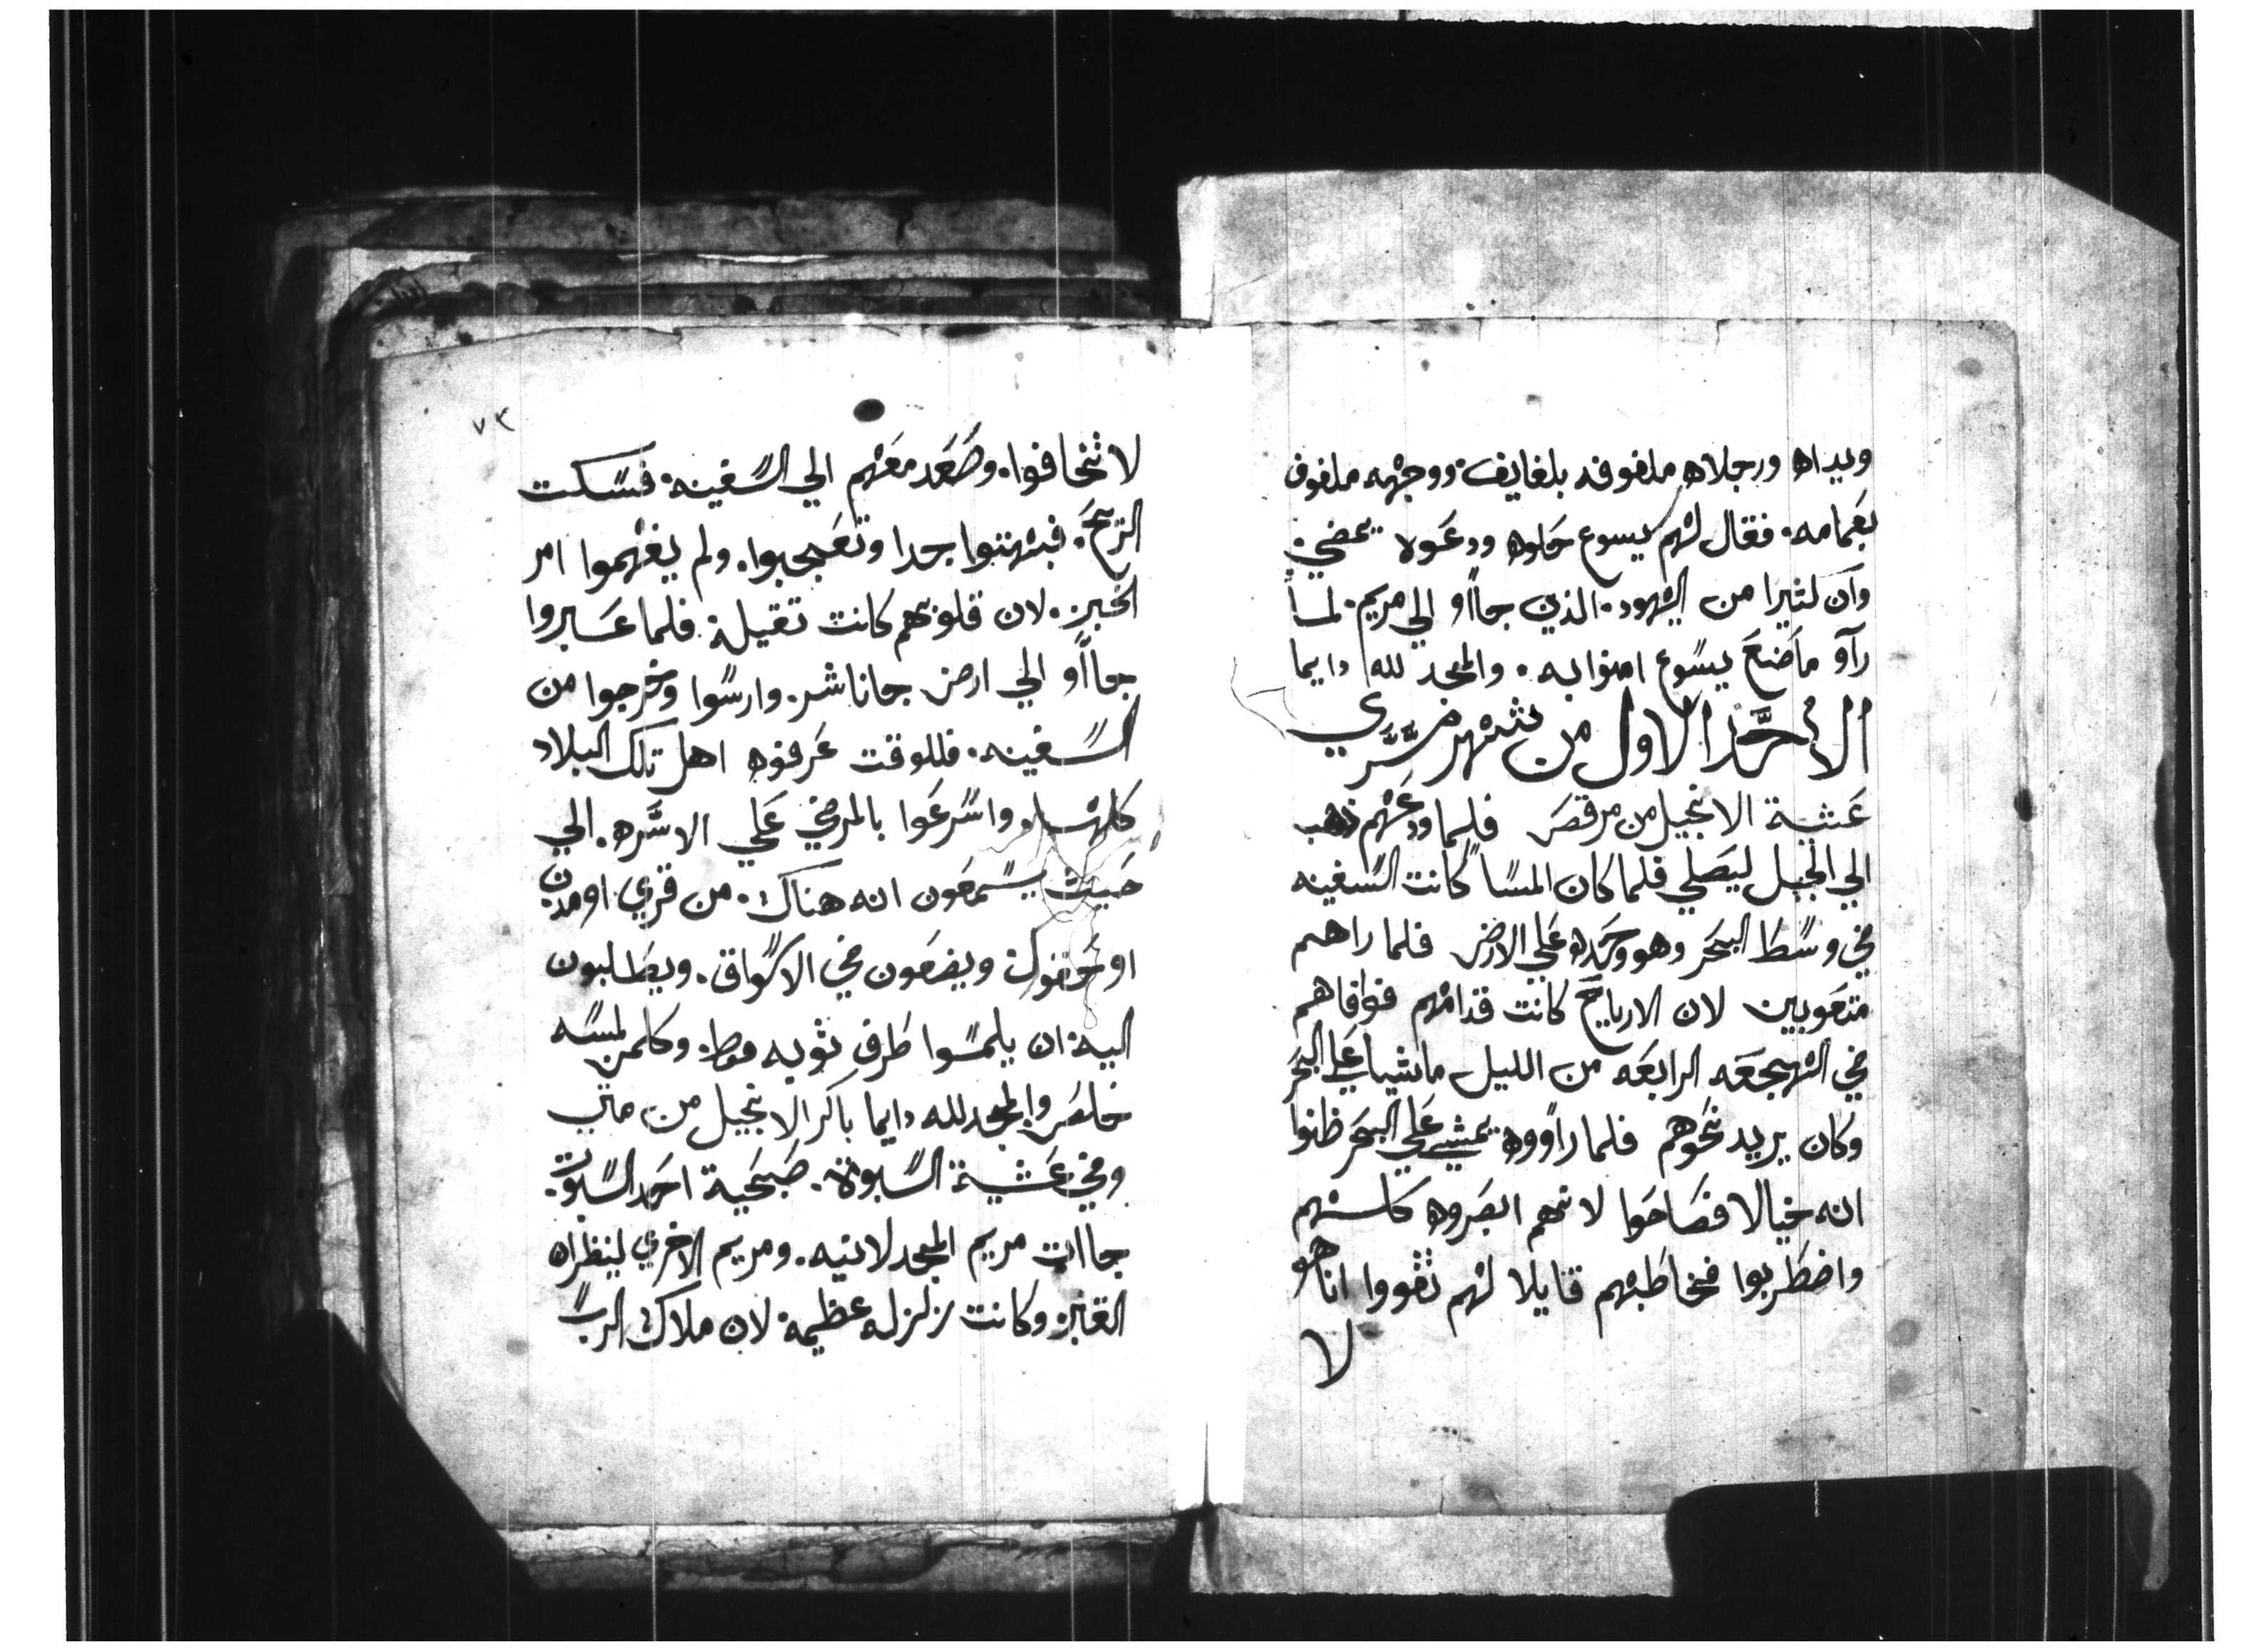 ويداه ورجلاه ملفوفه بلفايف. ووجهه ملفوف
بعمامه. فقال لهم يسوع حلوه ودعوه يمضي.
وان كثيرا من اليهود. الذين جااو الي مريم. لما
رآو ماصنع يسوع امنوا به. والمجد لله دايما
الاحد الاول من شهر مسري
عشية الانجيل من مرقص فلما ودعهم ذهب
الي الجبل ليصلي فلما كان المسا كانت السفينه
في وسط البحر وهو وحده علي الارض فلما راهم
متعوبين لان الارياح كانت قدامهم فوافاهم
في الهجعه الرابعه من الليل ماشيا علي البحر
وكان يريد نحوهم فلما راووه يمشي علي البحر ظنوا
انه خيالا فصاحوا لانهم ابصروه كلهم
واضطربوا فخاطبهم قايلا لهم ثقووا انا هو
لا
٧٣
لا تخافوا. وصعد معهم الي السفينه. فسكت
الريح. فبهتوا جدا وتعجبوا. ولم يفهموا امر
الخبز. لان قلوبهم كانت ثقيلة. فلما عبروا
جااو الي ارض جاناشر. وارسوا وخرجوا من
السفينه. فللوقت عرفوه اهل تلك البلاد
كلها. واسرعوا بالمرضي علي الاسره. الي
حيث يسمعون انه هناك. من قري او مدن
او حقول ويضعون في الاسواق. ويطلبون
اليه. ان يلمسوا طرف ثوبه فقط. وكلمن لمسه
خلص والمجد لله دايما باكر الانجيل من متي
وفي عشية السبوت. صبحية احد السبوت.
جاات مريم المجدلانيه. ومريم الاخري لينظران
القبر. وكانت زلزله عظيمة. لان ملاك الرب